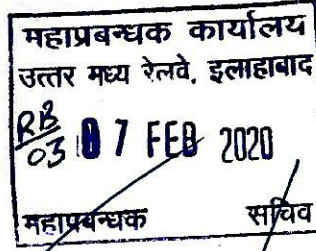 महाप्रबन्धक कार्यालय
उत्तर मध्य रेलवे, इलाहाबाद
RB
03 07 FEB 2020
महाप्रबन्धक सचिव